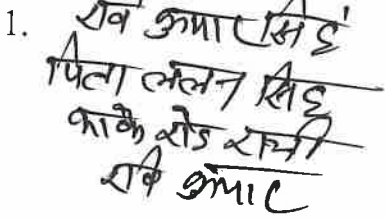 1. रवि कुमार सिंह
पिता ललन सिंह
कांके रोड रांची
रवि कुमार